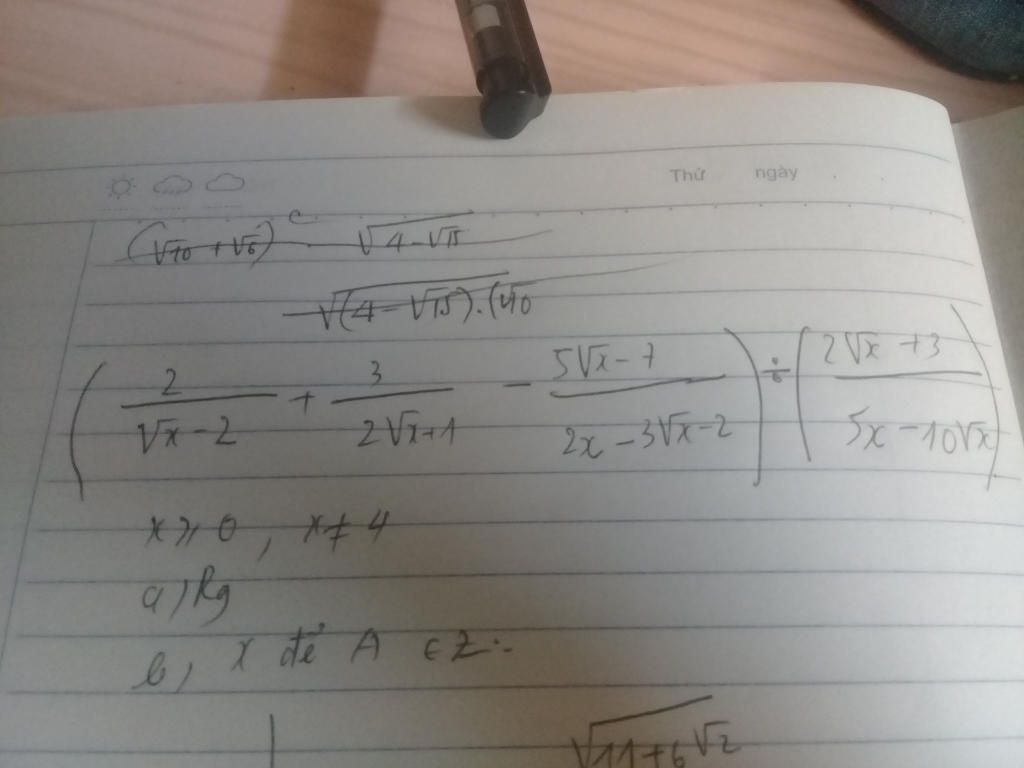 Thứ ngày
(√10 + √6) · √(4 - √15)
√((4 - √15).(√10
(2/(√x - 2) + 3/(2√x + 1) - (5√x - 7)/(2x - 3√x - 2)) ÷ ((2√x + 3)/(5x - 10√x))
x ≥ 0, x ≠ 4
a) Rg
b, x để A ∈ Z.
√(11 + 6√2)